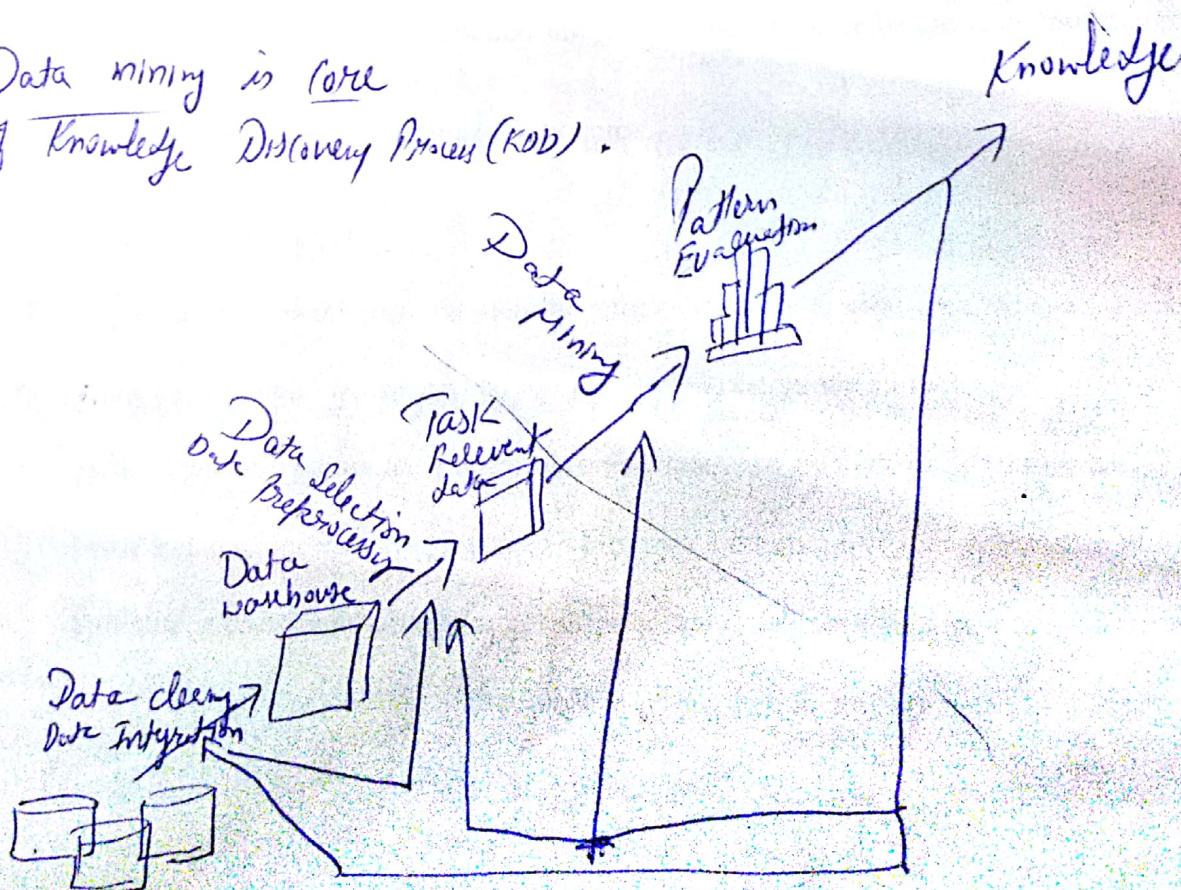 Data mining is core
f Knowledge Discovery Process (KDD).
Knowledge
Pattern
Evaluation
Data
Mining
Task
Relevent
data
Data Selection
Data Preprocessing
Data
warehouse
Data cleeng
Data Integration